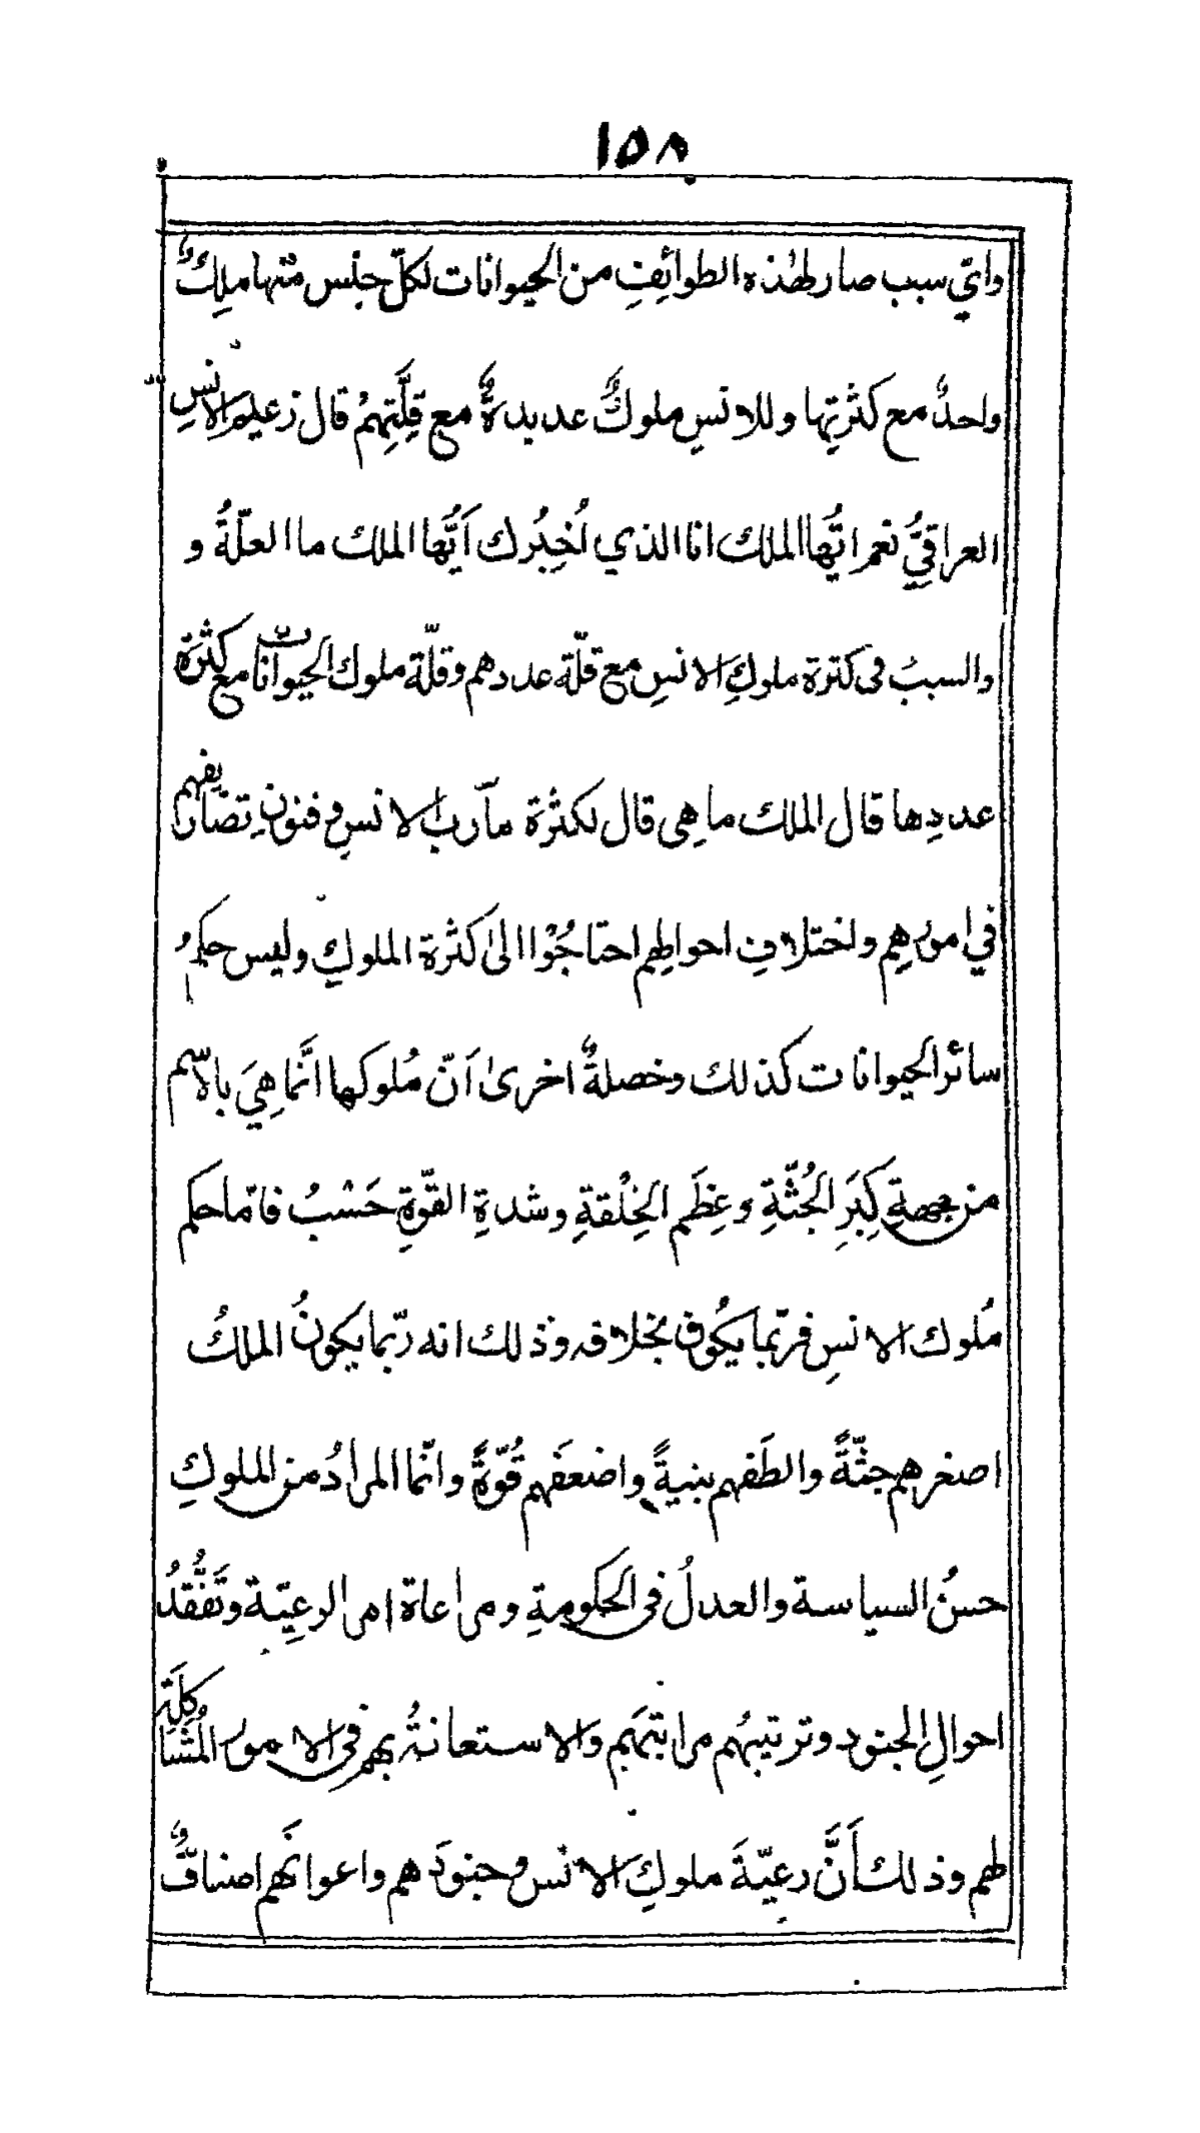 ١٥٨
وايّ سبب صار لهٰذه الطوائِفِ من الحيوانات لكلّ جنس منها ملِكٌ
واحدٌ مع كثرتِها وللانسِ ملوكٌ عديدةٌ مع قِلَّتِهِمْ قال زعيمُ الانسِ
العراقيُّ نعم ايُّها الملك انا الذي اُخبِرُك اَيُّها الملك ما العلّةُ و
والسببُ فى كثرة ملوكِ الانسِ مع قلّة عددهم وقلّة ملوك الحيوانات مع كثرة
عددِها قال الملك ما هِى قال لكثرة مآرب الانسِ وفنونِ تصاريفهم
في امورهِم واختلافِ احوالِهم احتاجُوْا الىٰ كثرة الملوكِ وليس حكمُ
سائر الحيوانات كذلك وخصلةٌ اخرىٰ اَنّ مُلوكها انَّما هِيَ بالاسّم
من جهةِ كِبَرِ الجُثّةِ وعِظَم الخِلْقةِ وشدةِ القّوةِ حَسْبُ فامّا حكم
مُلوك الانسِ فربّما يكُون بخلافه وذلك انه ربّما يكونُ الملكُ
اصغرهم جثّةً والطَفهم بنيةً واضعفَهم قُوّةً وانّما المرادُ من الملوكِ
حسنُ السياسة والعدلُ فى الحكومةِ ومراعاة امر الرعِيّة وتَفُّقدُ
احوالِ الجنود وترتيبُهم مراتبَهم والاستعانةُ بهم فى الامور المُشاكِلَة
لهم وذلك أَنَّ رعِيّةَ ملوكِ الانس وجنودَهم واعوانَهم اصنافٌ